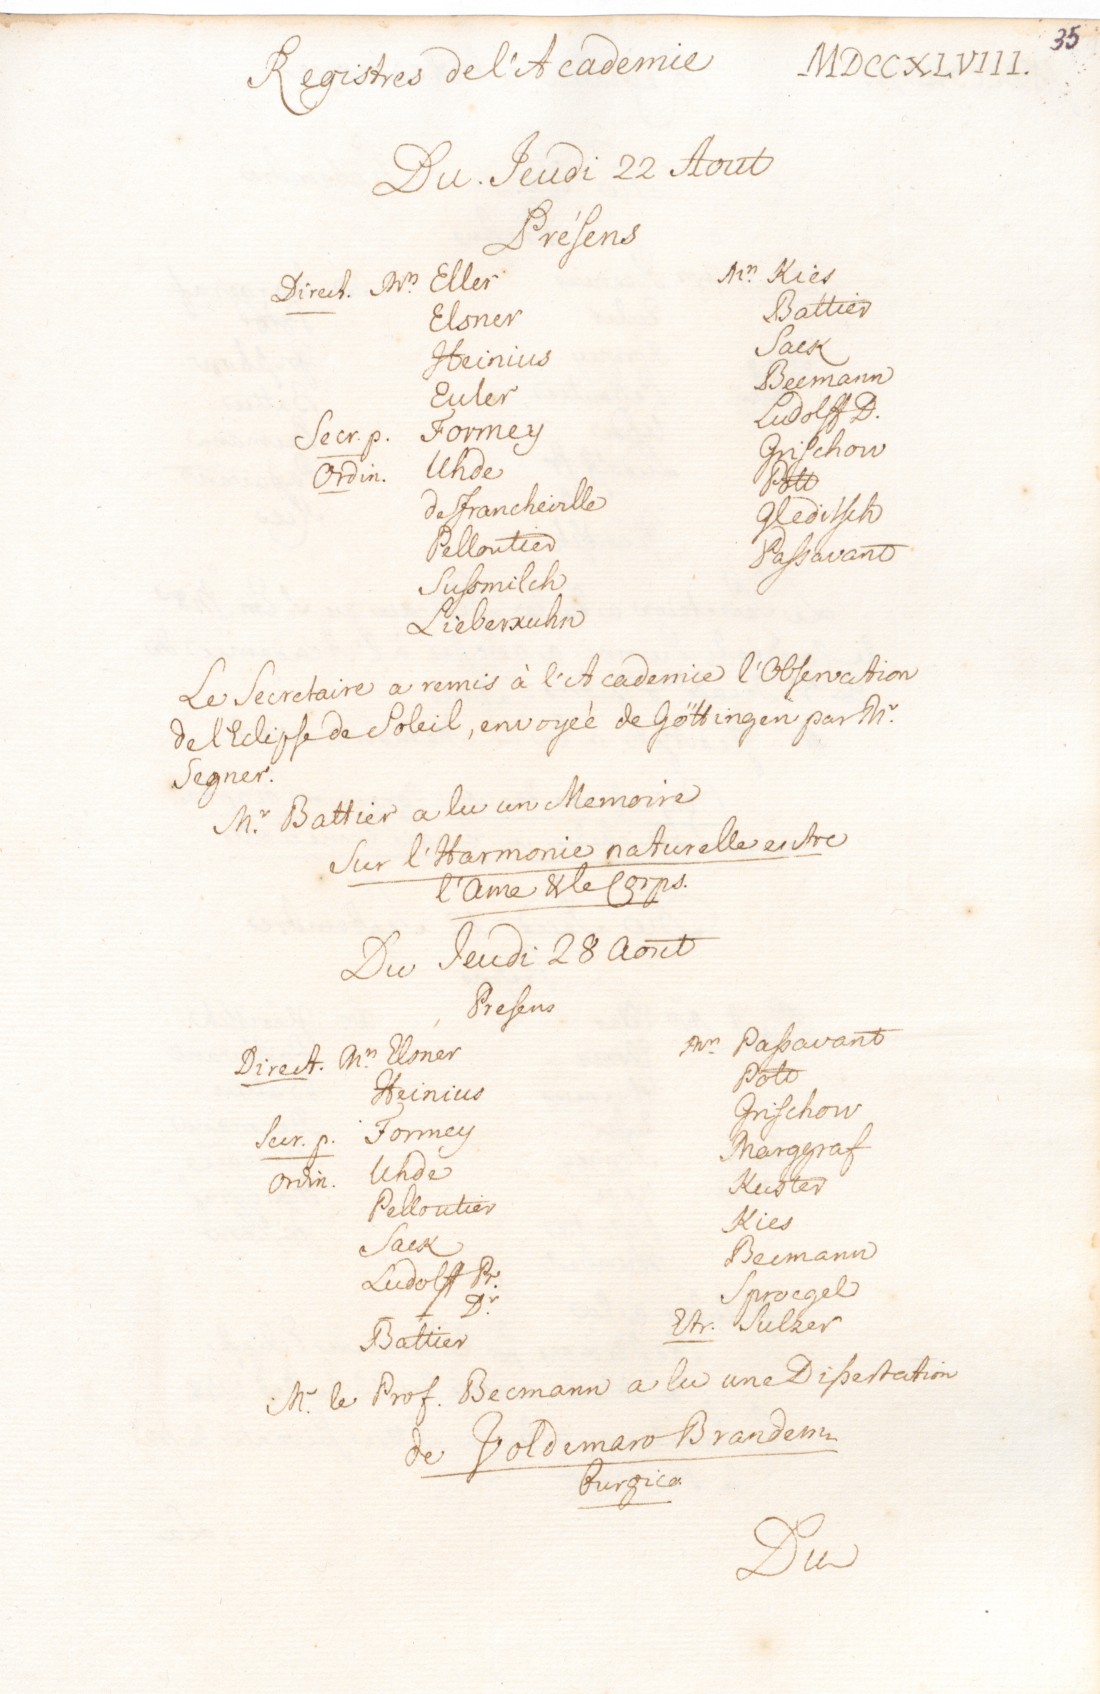 35
Registres de l'Academie MDCCXLVIII.
Du Jeudi 22 Aout
Présens
Direct. Mrs Eller
Elsner
Heinius
Euler
Secr. p. Formey
Ordin. Uhde
de Francheville
Pelloutier
Sussmilch
Lieberkuhn
Mrs Kies
Battier
Sack
Becmann
Ludolff D.
Grischow
Pott
Gleditsch
Passavant
Le Secretaire a remis à l'Academie l'Observation
de l'Eclipse de Soleil, envoyeé de Göttingen par Mr.
Segner.
Mr. Battier a lu un Memoire
Sur l'Harmonie naturelle entre
l'Ame & le Corps.
Du Jeudi 28 Aout
Presens
Direct. Mrs Elsner
Heinius
Secr. p. Formey
Ordin. Uhde
Pelloutier
Sack
Ludolff Pr.
Dr
Battier
Mrs Passavant
Pott
Grischow
Marggraf
Kuster
Kies
Becmann
Sproegel
Etr. Sulzer
Mr. le Prof. Becmann a lu une Dissertation
de Voldemaro Branden
burgico
Du